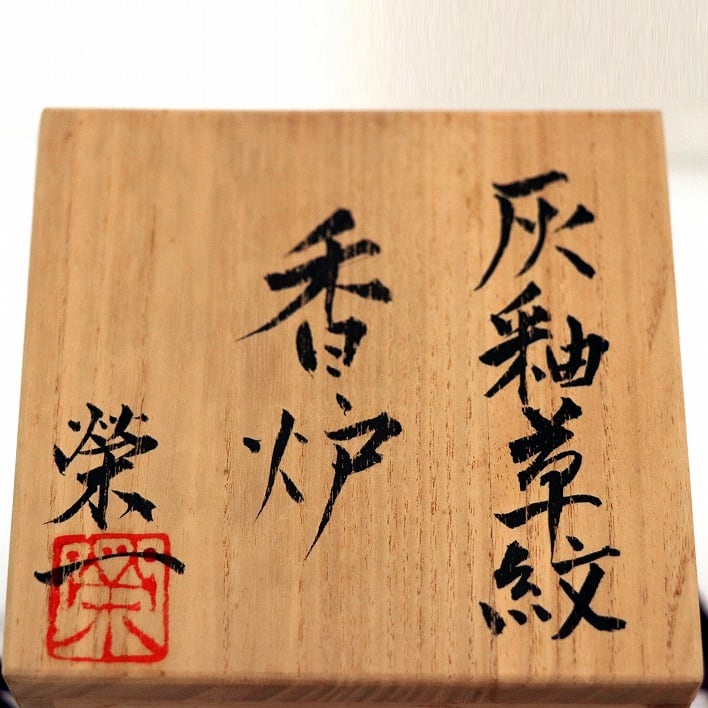 灰釉草紋
香炉
榮一
榮